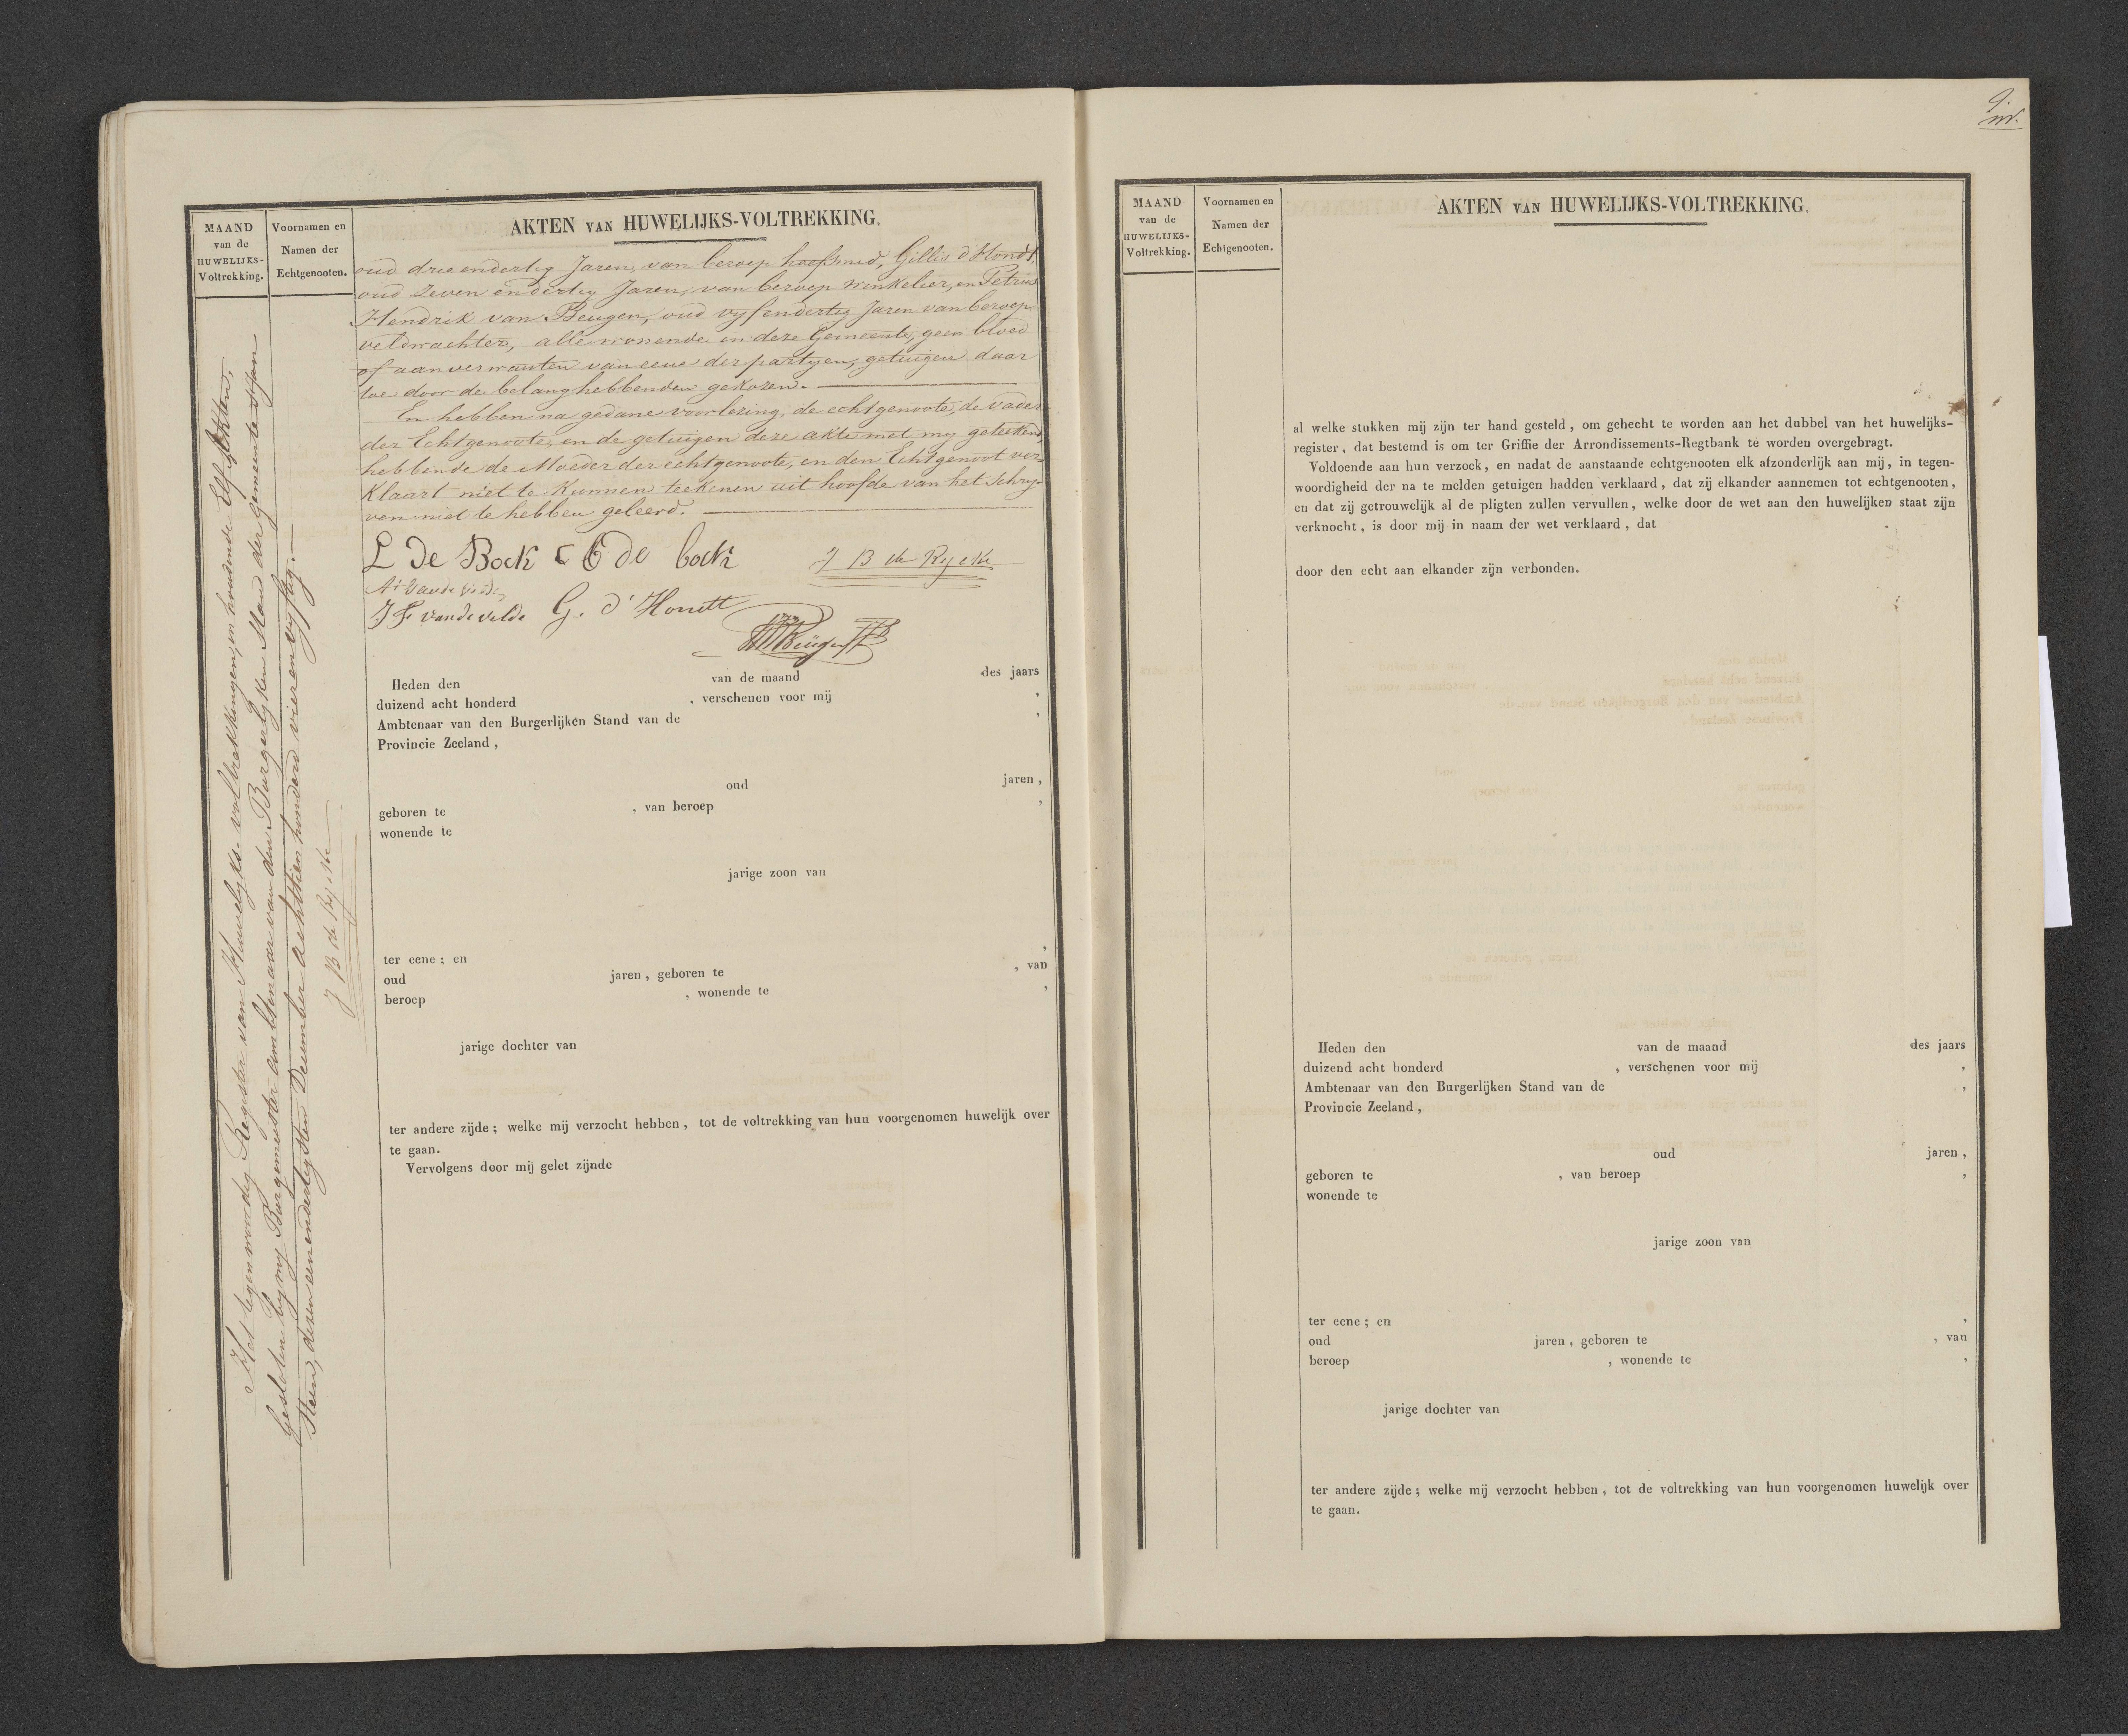 MAAND
van de
HUWELIJKS-
Voltrekking.
Voornamen en
Namen der
Echtgenooten.
AKTEN VAN HUWELIJKS-VOLTREKKING.
oud drie endertig Jaren, van beroep hoefsmid, Gillis d'Hondt,
oud Zeven endertig Jaren, van beroep Winkelier, en Petrus
Hendrik van Beugen, oud vyfendertig Jaren van beroep
veldwachter, alle wonende in deze Gemeente, geen bloed
of aanverwanten van eene der partyen, getuigen daar
toe door de belanghebbenden gekozen.
En hebben na gedane voorlezing, de echtgenoote, de Vader
der Echtgenoote, en de getuigen deze akte met my geteekend,
hebbende de Moeder der echtgenoote, en den Echtgenoot ver-
klaart niet te kunnen teekenen uit hoofde van het Schry-
ven niet te hebben geleerd.
L De Bock C B de bock J B de Rycke
As Vande velde
J F vande velde G. d'Hondt
Beugen
Heden den van de maand des jaars
duizend acht honderd , verschenen voor mij ,
Ambtenaar van den Burgerlijken Stand van de ,
Provincie Zeeland ,
oud jaren ,
geboren te , van beroep ,
wonende te
jarige zoon van
ter eene ; en ,
oud jaren , geboren te , van
beroep , wonende te ,
jarige dochter van
ter andere zijde ; welke mij verzocht hebben , tot de voltrekking van hun voorgenomen huwelijk over
te gaan.
Vervolgens door mij gelet zijnde
Het tegenwoordig Register van Huwelyks-voltrekkingen, en houdende Elf Akten,
Gesloten by my Burgemeester ambtenaar van den Burgerlyken Stand der gemeente
Steen, dezen eenendertigsten December achttien honderd vieren vyftig.
J B de Rycke
9.
MAAND
van de
HUWELIJKS-
Voltrekking.
Voornamen en
Namen der
Echtgenooten.
AKTEN VAN HUWELIJKS-VOLTREKKING.
al welke stukken mij zijn ter hand gesteld , om gehecht te worden aan het dubbel van het huwelijks-
register , dat bestemd is om ter Griffie der Arrondissements-Regtbank te worden overgebragt.
Voldoende aan hun verzoek , en nadat de aanstaande echtgenooten elk afzonderlijk aan mij , in tegen-
woordigheid der na te melden getuigen hadden verklaard , dat zij elkander aannemen tot echtgenooten ,
en dat zij getrouwelijk al de pligten zullen vervullen , welke door de wet aan den huwelijken staat zijn
verknocht , is door mij in naam der wet verklaard , dat
door den echt aan elkander zijn verbonden.
Heden den van de maand des jaars
duizend acht honderd , verschenen voor mij ,
Ambtenaar van den Burgerlijken Stand van de ,
Provincie Zeeland ,
oud jaren ,
geboren te , van beroep ,
wonende te
jarige zoon van
ter eene ; en ,
oud jaren , geboren te , van
beroep , wonende te ,
jarige dochter van
ter andere zijde ; welke mij verzocht hebben , tot de voltrekking van hun voorgenomen huwelijk over
te gaan.